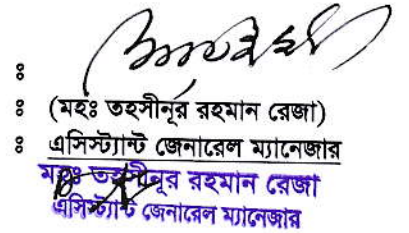 ঃ
ঃ (মহঃ তহসীনূর রহমান রেজা)
ঃ এসিস্ট্যান্ট জেনারেল ম্যানেজার
মহঃ তহসীনূর রহমান রেজা
এসিস্ট্যান্ট জেনারেল ম্যানেজার